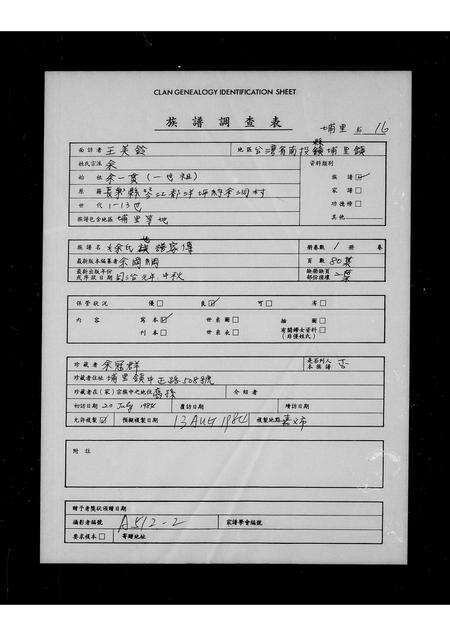 CLAN GENEALOGY IDENTIFICATION SHEET
族譜調查表
埔里 16
面訪者 王美鈴 地區 台灣省南投縣埔里鎮
姓氏宗派 余 資料類別
始祖 余一度(一世祖) 族譜☑
原籍 家譜□
世代 1-13世 功德榜□
族譜包含地區 埔里等地 其他
族譜名 余氏族譜家傳 冊卷數 1 冊 卷
最新版本編纂者 余岡 頁數 80
最新出版年份或序跋日期 同治元年 中秋 缺卷缺頁部份損壞
保管狀況 優□ 良☑ 可□ 劣□
內容 寫本☑ 世系圖□ 插圖□
刊本□ 世系表□ 有關婦女資料□ (非僅姓氏)
珍藏者 余冠群 是否列入本族譜 否
珍藏者住址 埔里鎮中正路508號
珍藏者在(家)宗族中之地位 裔孫 介紹者
初訪日期 20 July 1984 覆訪日期 續訪日期
允許複製☑ 預擬複製日期 13 AUG 1984 複製地點 嘉義市
附註
贈予者獎狀頒贈日期
攝影者編號 A512-2 家譜學會編號
要求複本□ 寄贈地址